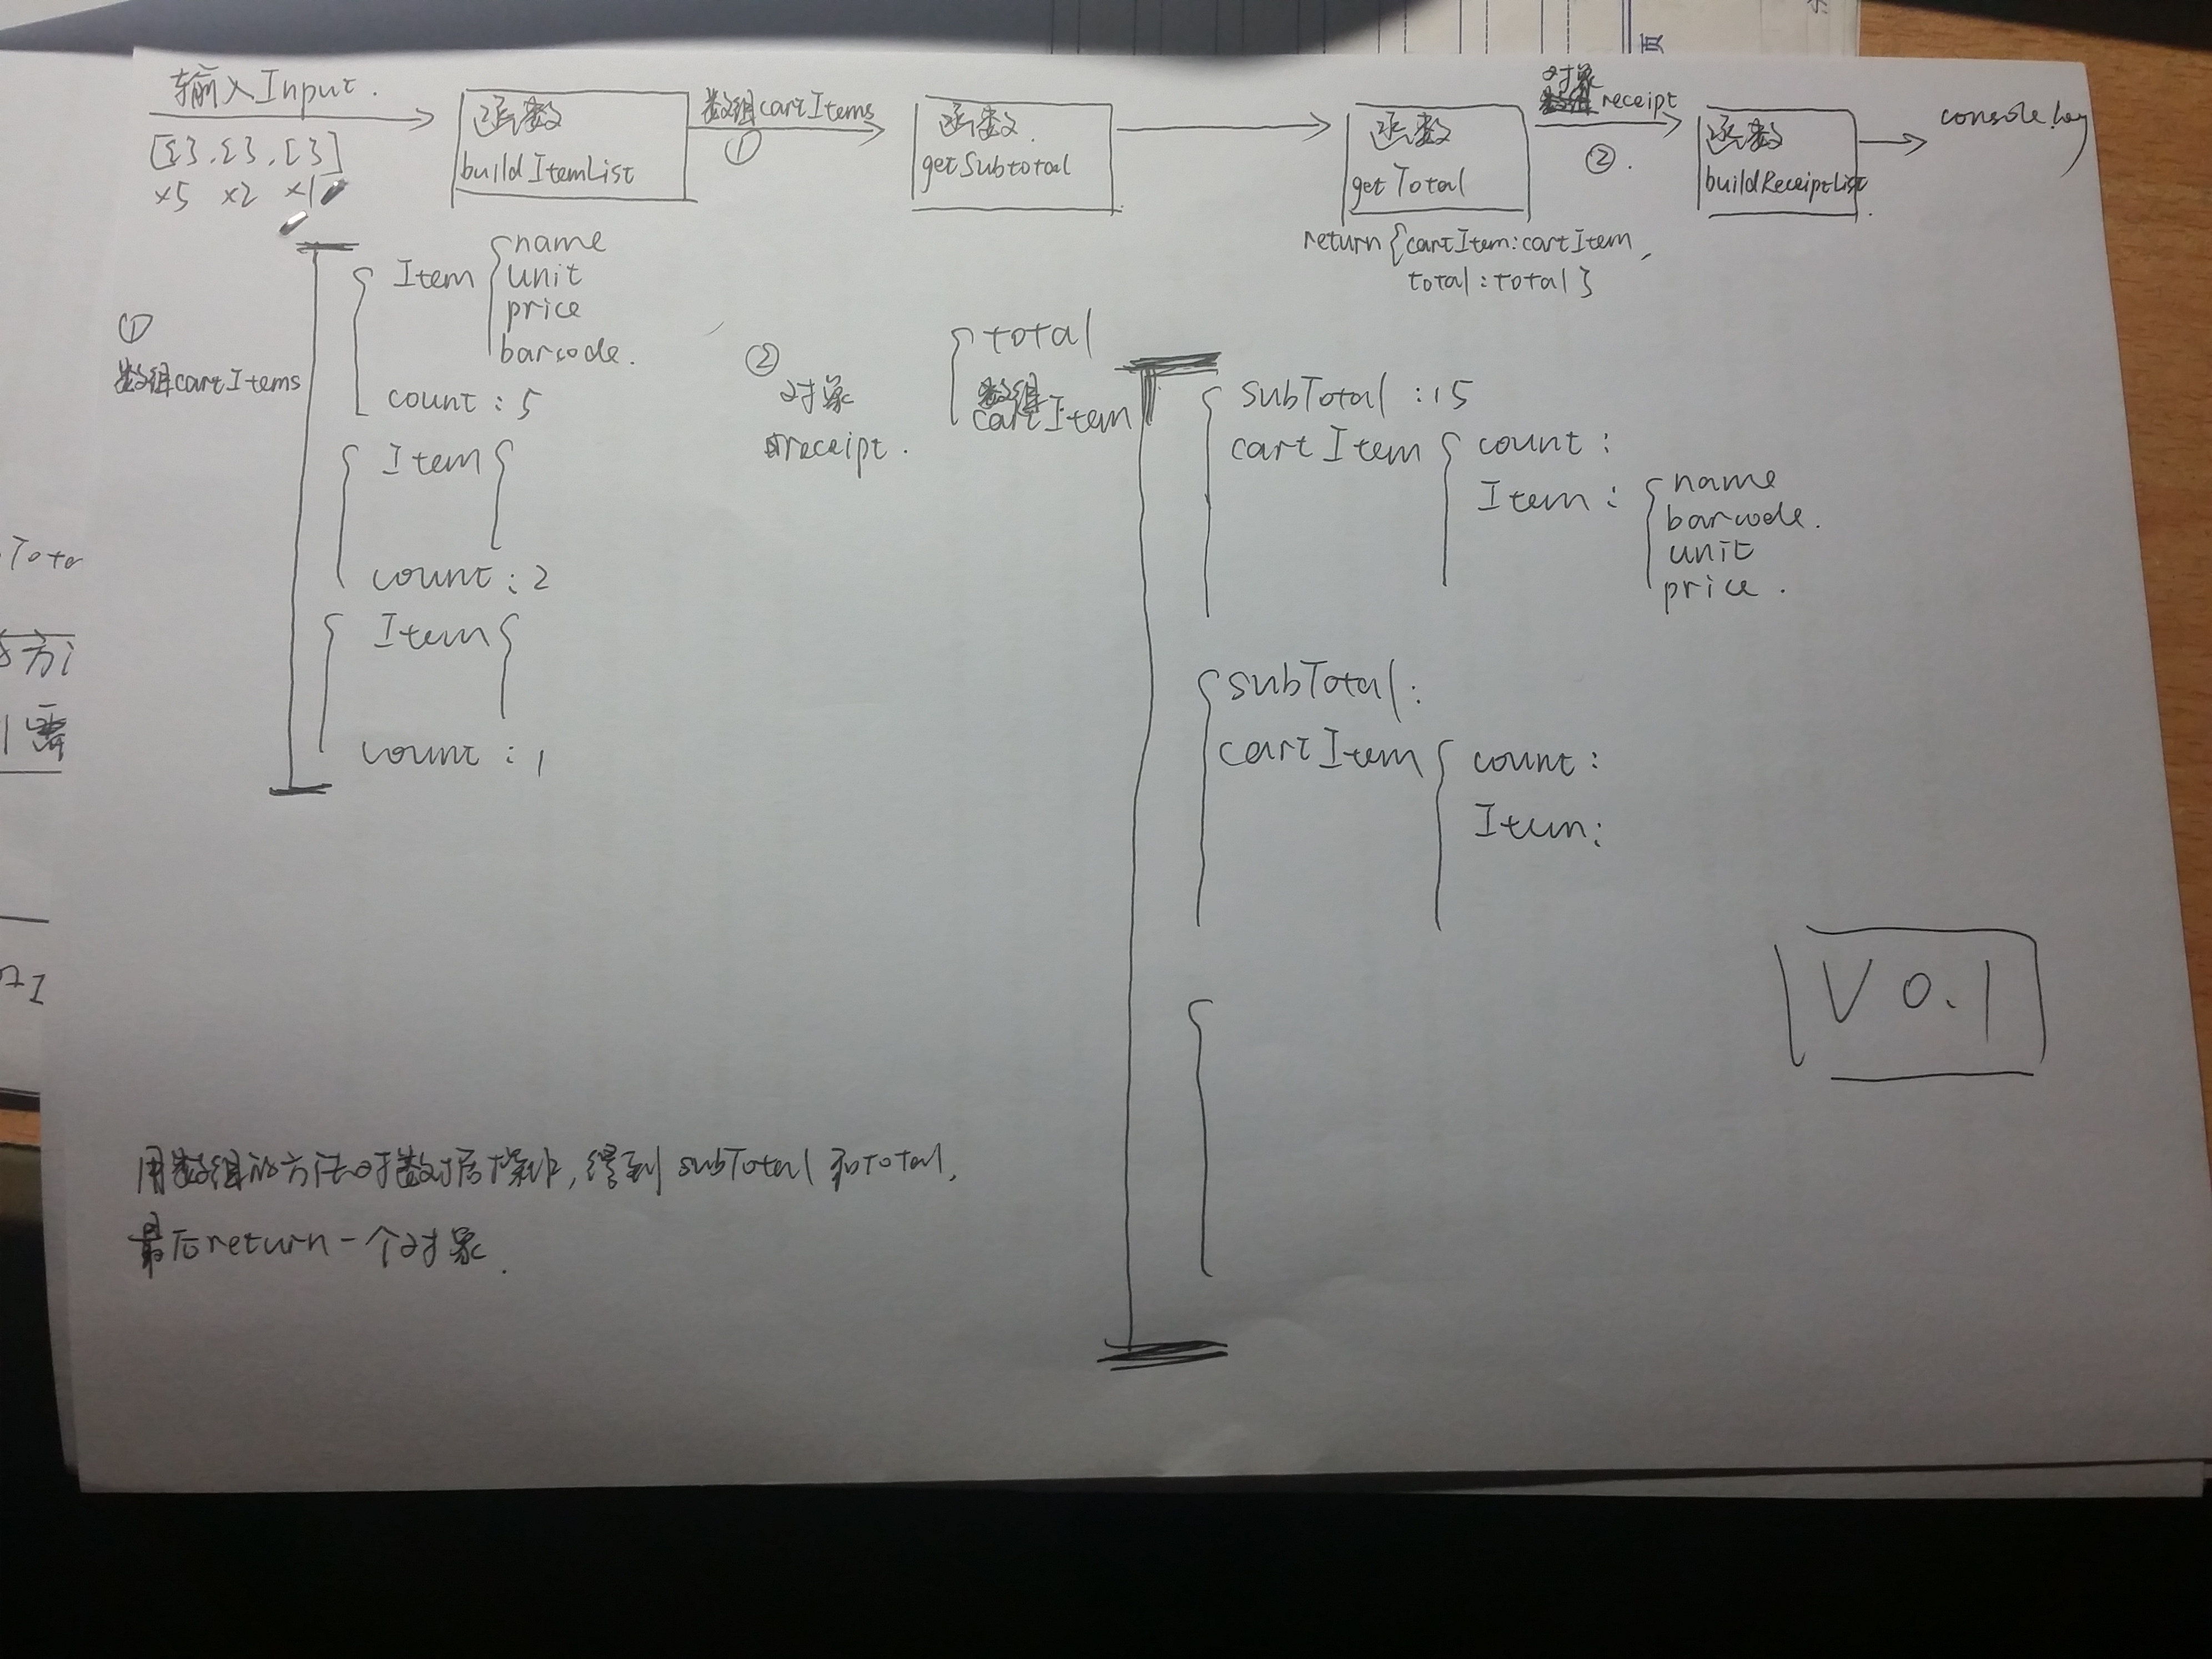 输入Input.
[{},{},{}]
×5 ×2 ×1
函数
buildItemList
数组cartItems
①
函数.
getSubtotal
函数
getTotal
return{cartItem:cartItem,
total:total}
对象
receipt
②.
函数
buildReceiptList
console.log
①
数组cartItems
Item
name
unit
price
barcode.
count:5
Item
count:2
Item
count:1
②
对象
receipt.
total
数组
cartItem
subTotal:15
cartItem
count:
Item:
name
barcode.
unit
price.
subTotal:
cartItem
count:
Item:
V0.1
用数组的方法对数据操作,得到subTotal和total,
最后return一个对象.
页
方
需